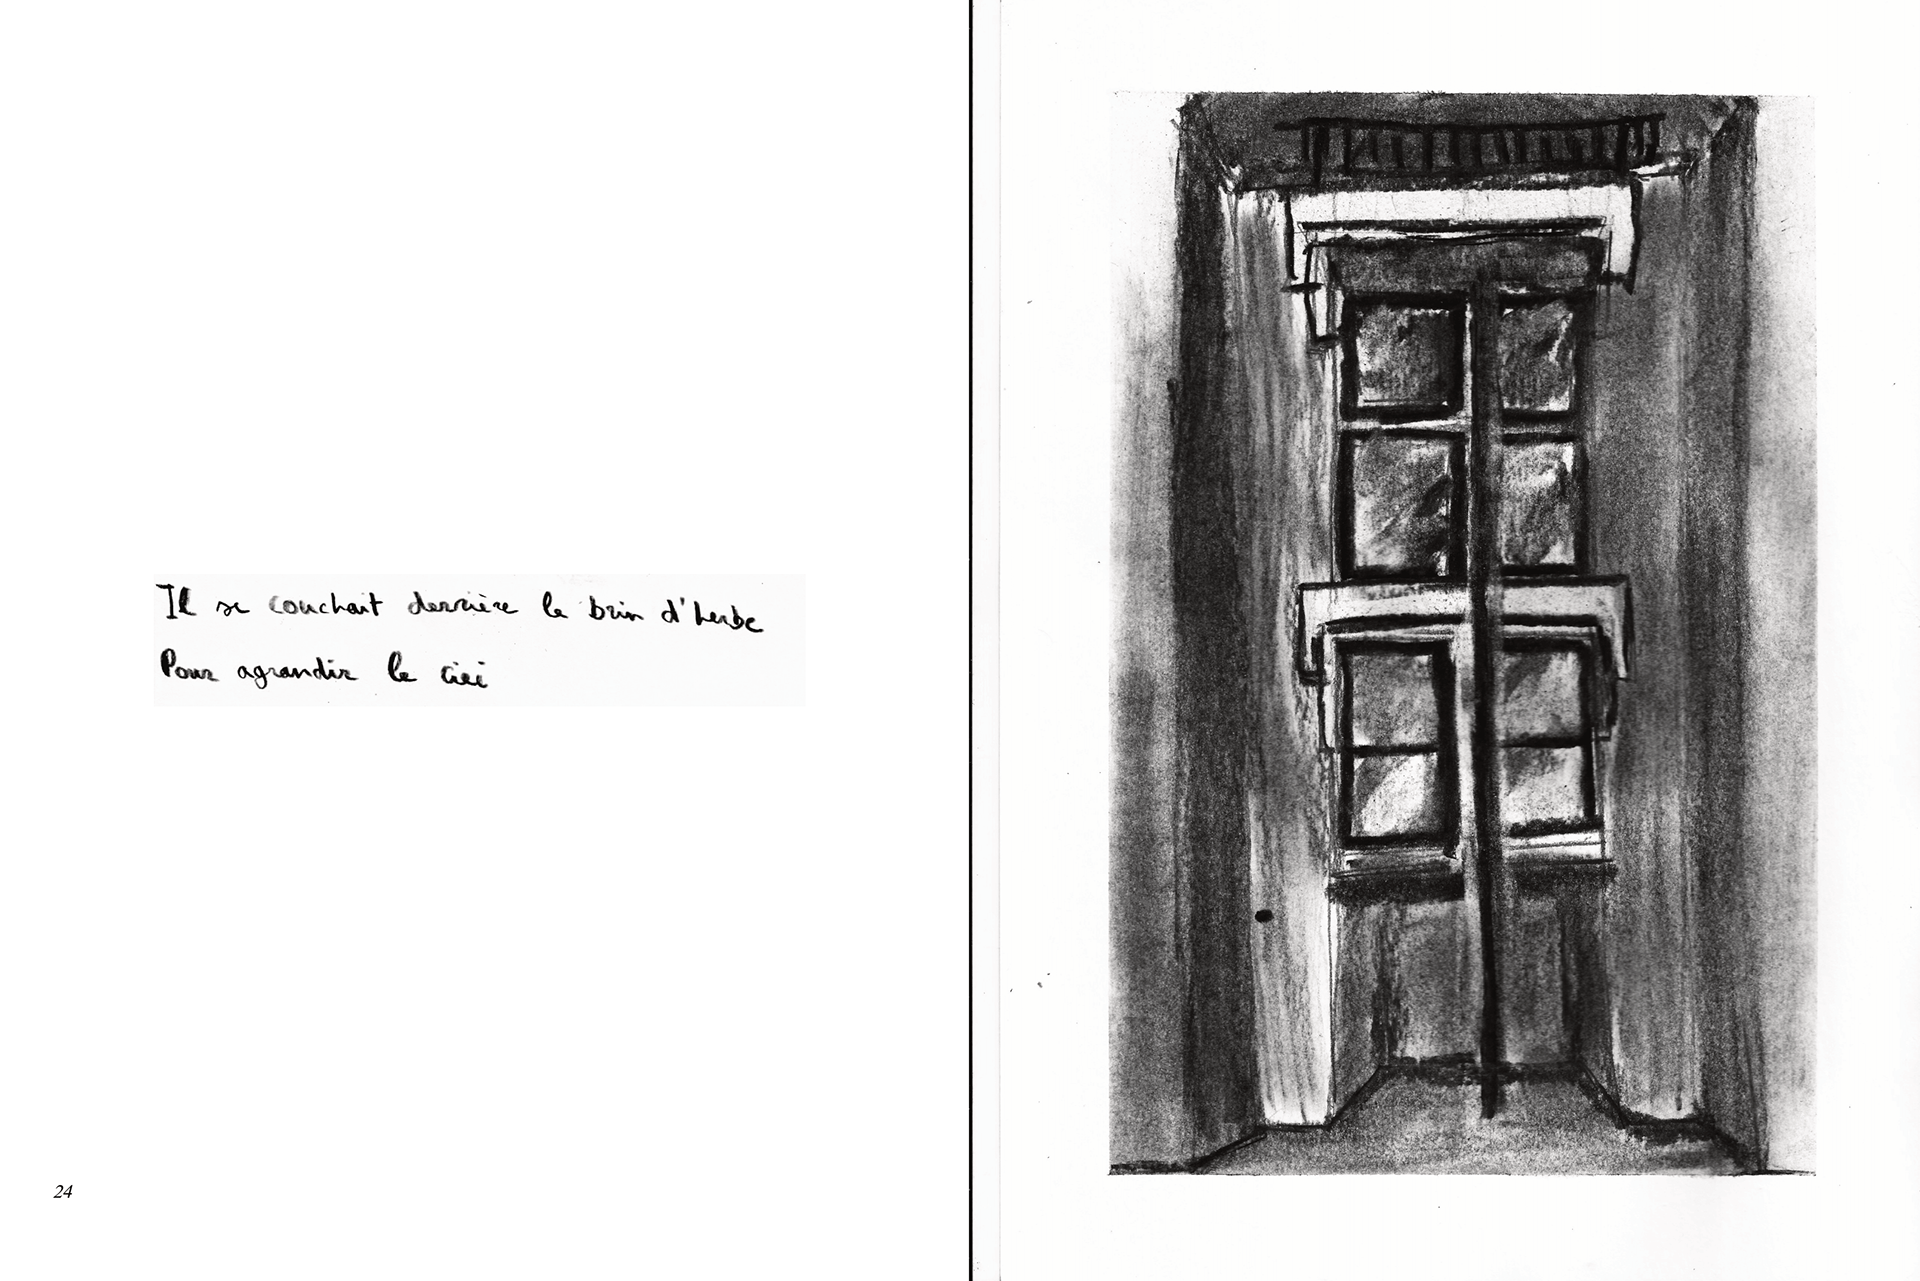 Il se couchait derrière le brin d'herbe
Pour agrandir le ciel
24